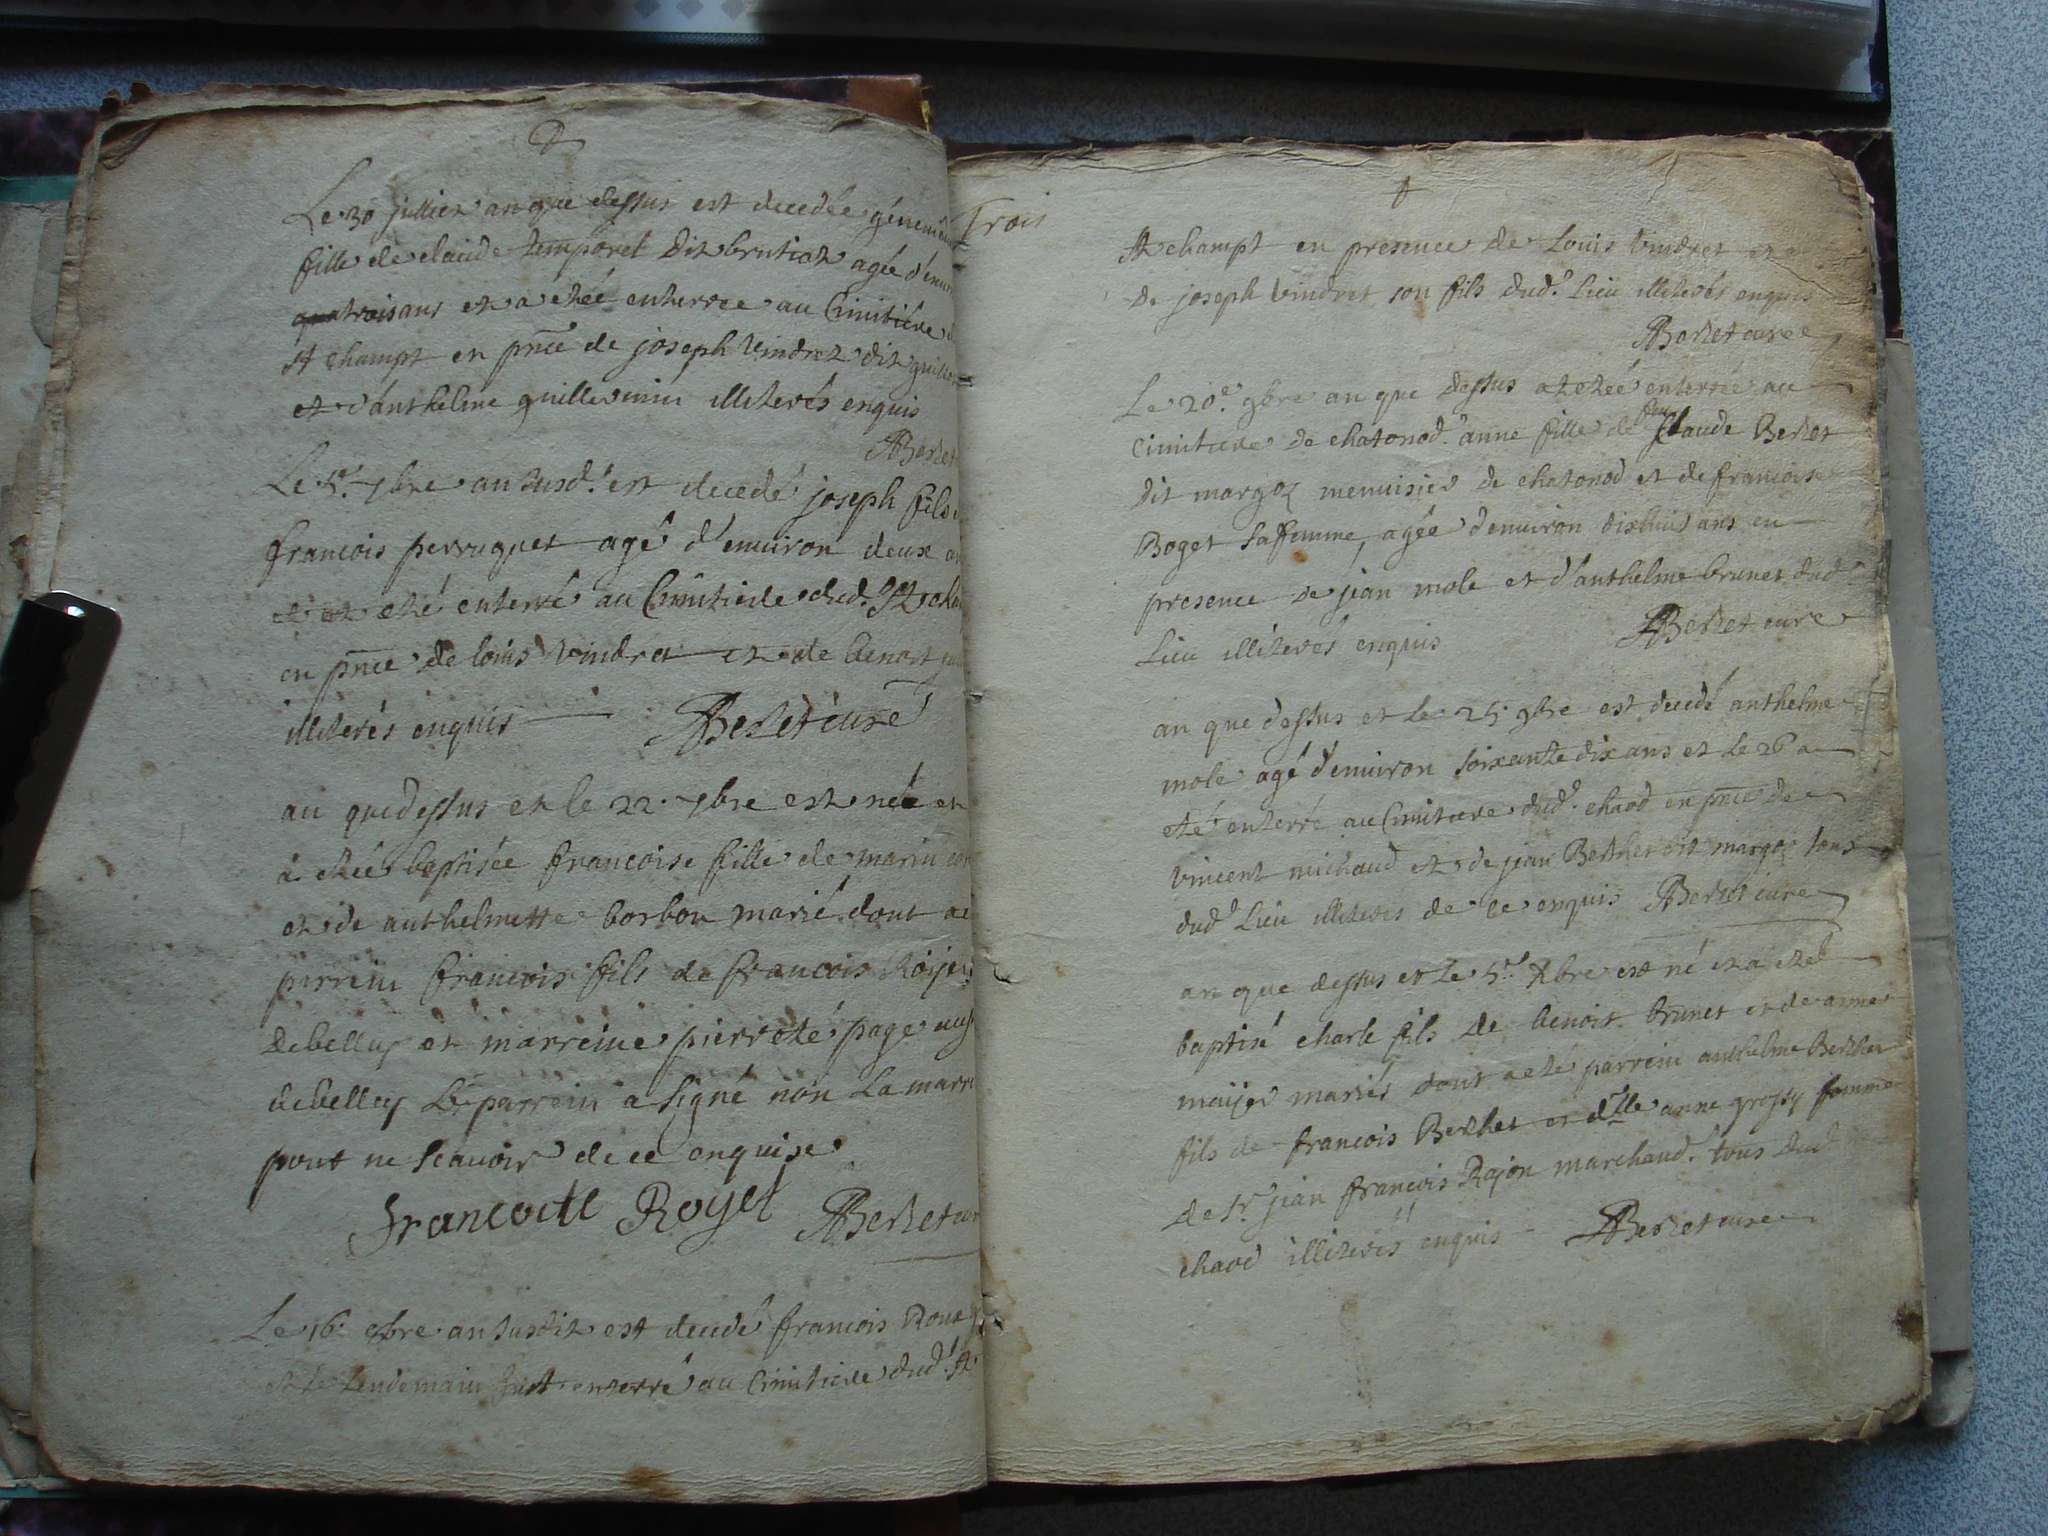 Le 30 juillet an que dessus est decedée
fille de claude temporel dit brutiat agée
quatroisans et a étée enterree au Cimitiére
St champt en pnce de joseph Vindret dit
et d'anthelme guillermin illiterés enquis
Berlet
Le 5e 7bre an susd. est decedé joseph fils
francois perruquet agé d'environ deux
et eté enterré au Cimitiere dud. St
en pnce de loüis Vindret et de benoit
illiterés enquis Berlet curé
an que dessus et le 22. 7bre est née et
a étée baptisée francoise fille de marin
et de anthelmette borbon marié dont a
parrein francois fils de francois Roijet
debelley et marreine pierreté page
debelley Le parrein a signé non La
pour ne scavoir de ce enquise
francoise Royet Berlet
Le 16e 8bre an susdit est decedé francois Roux
et le lendemain fust enterré au Cimitiere dud. St
Trois
St champt en presence de Louis Vindret et
de joseph Vindret son fils dud. Lieu illiterés enquis
Berlet curé
Le 20e. 9bre an que dessus a etée enterrée au
Cimitiere de chatonod anne fille de feu Claude Berlet
dit margoz menuisier de chatonod et de francoise
Boget sa femme, agée d'environ dixhuit ans en
presence de jean mole et d'anthelme brunet dud.
Lieu illiterés enquis Berlet cure
an que dessus et Le 25. 9bre est decedé anthelme
mole agé d'environ soixante dix ans et le 26 a
eté enterré au Cimitiere dud. chaod en pnce de
Vincent michaud et de jean Berthet dit margoz tous
dud. Lieu illiterés de ce enquis Berlet cure
an que dessus et le 5e Xbre est né et a eté
baptisé charle fils de benoit brunet et de anne
maijet mariés dont a eté parrein anthelme Berthet
fils de francois Berthet et dlle anne grossy femme
de Sr. jean francois Rajon marchand. tous dud.
chaod illiterés enquis Berlet cure